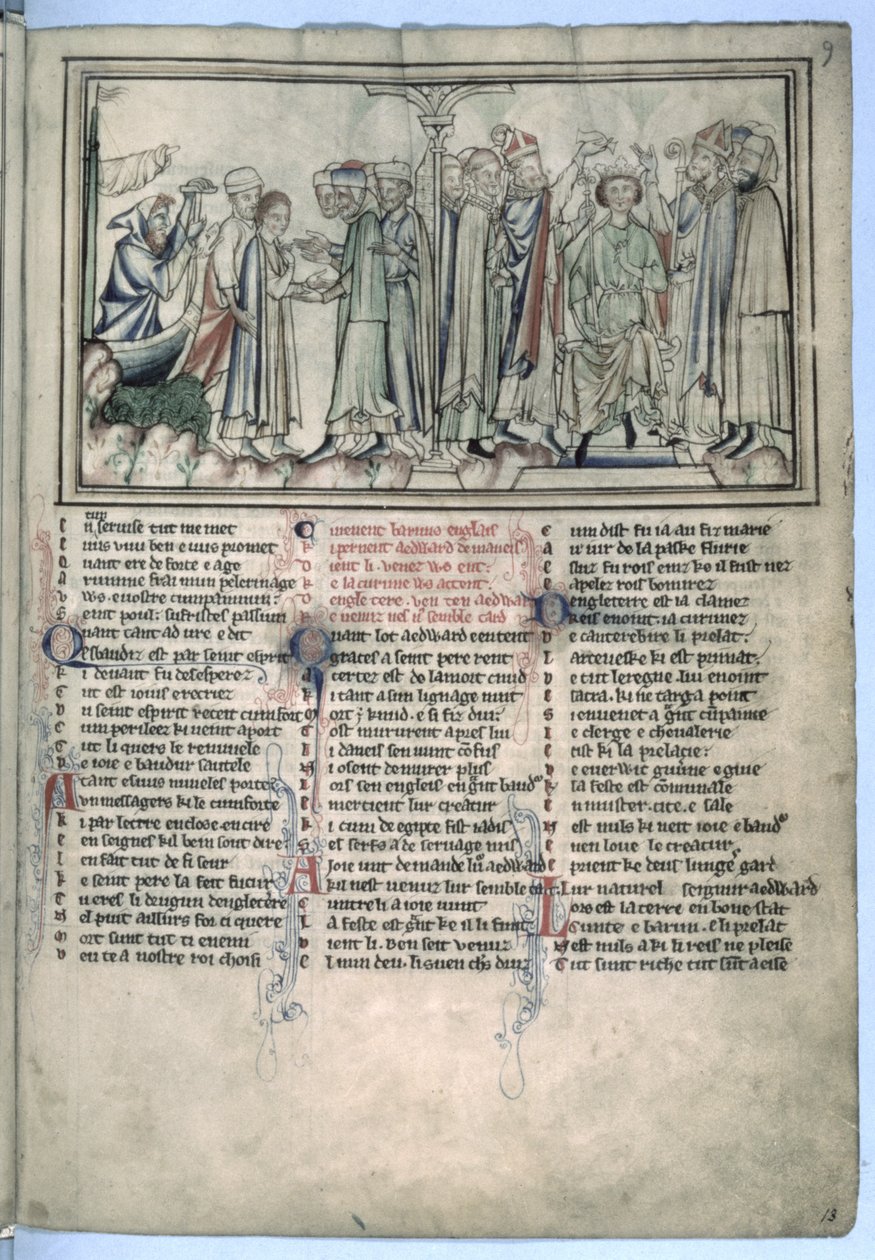 9
tur
En seruise tut me met
E uus vuu ben e uus promet
Quant ere de force e age
A rumme frai mun pelerinage
V ws. e uostre cumpainnun:
S eint poul: sufristes passiun
Quant eant ad ure e dit
Esbaudiz est par seint esprit
K i deuant fu desesperez
T ut est iouis e recriez
D u seint espirit receit cumfort
C um perileez ki ueint a port
T ut li quers le renuuele
D e ioie e baudur sautele
Atant es uus nuueles portez
Vn messagers ki le cumforte
K i par lettre enclose en cire
E en seignes kil bein sout dire
L en fait tut de fi seur
K e seint pere la feit futur
T u eres li dreuin dengletere
N el puit aillurs for ci quere
M ort sunt tut ti enemi
V eu te a nostre roi choisi
C i uenent baruns engleis
K i pernent Aedward de maneis
D ient li. venez ws ent:
K e la curune ws attent:
D engletere. ven ten aedward
K e uenir nes u semble tard
Quant lot aedward e entent
Grates a seint pere rent
A certez est de la mort cnud
K i tant a sun lignage nuit
M ort y knud. e si fiz dui:
T ost mururent apres lui
L i daneis sen uunt cofus
N i osent demurer plus
L ors sen engleis en gnt baudur
E mercient lur creatur
K i cum de egipte fist iadis
S es serfs a de seruage mis
A ioie uunt demande lur aedward
Kil nest uenuz lur semble tart
C untre li a ioie uunt
L A feste est gnt ke il li funt
D ient li. Ben seit venuz
E l nun deu. li suen chs druz
C um dist fu ia au fiz marie
A u iur de la paske flurie
S eur fu rois einz ke il fust nez
E apelez rois bonurez
Dengleterre est ia clamez
Reis enoint: ia curunez
D e cauterebire li prelat:
L arceueske ki est primat:
D e tut le regne. lui enoint
E sacra. ki ne targa point
S i enuenet a gnt cumpainie
D e clergie e cheualerie
C ist ki la prelacie:
D e euerwic guuerne e guie
K e la feste est communale
E n muster. cite. e sale
N est nuls ki neit ioie e baudur
E uen loue le creatur
E prient ke deus lunges gard
Lur naturel seignur aedward
Lors est la terre en bone stat
Cunte e barun. e li prelat
N est nuls a ki li reis ne pleise
T ut sunt riche tut sunt a eise
13